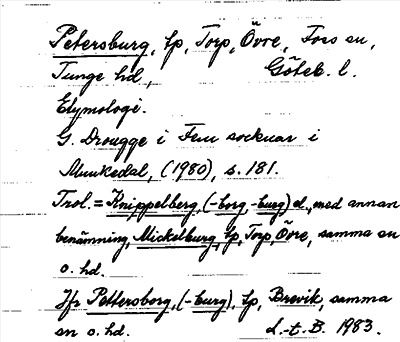 Petersburg, lp, Torp, Övre, Foss sn,
Tunge hd, Göteb. l.
Etymologi.
G. Drougge i Fem socknar i
Munkedal, (1980), s. 181.
Trol. = Knippelberg, (-borg, -burg) el., med annan
benämning, Mickelburg, lp, Torp, Övre, samma sn
o. hd.
Jfr Pettersborg, (-burg), lp, Brevik, samma
sn o. hd. L.-t. B. 1983.